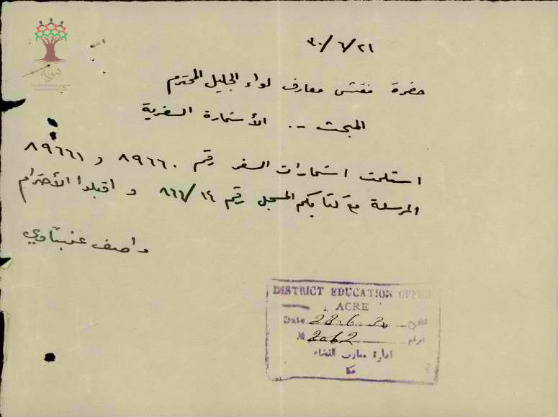 ٣٠/٦/٢١
حضرة مفتش معارف لواء الجليل المحترم
المبحث -. الأستمارة السفرية
استلمت استمارات السفر رقم ٨٩٦٦٠ و ٨٩٦٦١
المرسلة مع كتابكم المسجل رقم ٨٦٦/١٤ و اقبلوا الأحترام
واصف عنبتاوي
DISTRICT EDUCATION OFFICE
ACRE
Date 23.6.30
№ 2062
ادارة معارف القضاء
عكا